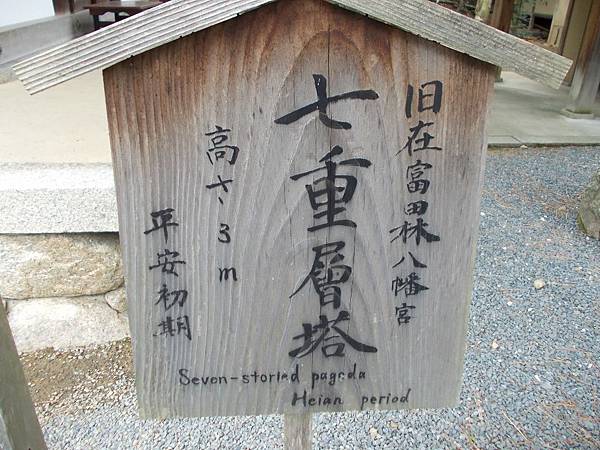 旧在富田林八幡宮
七重層塔
高さ3m
平安初期
Seven-storied pagoda
Heian period